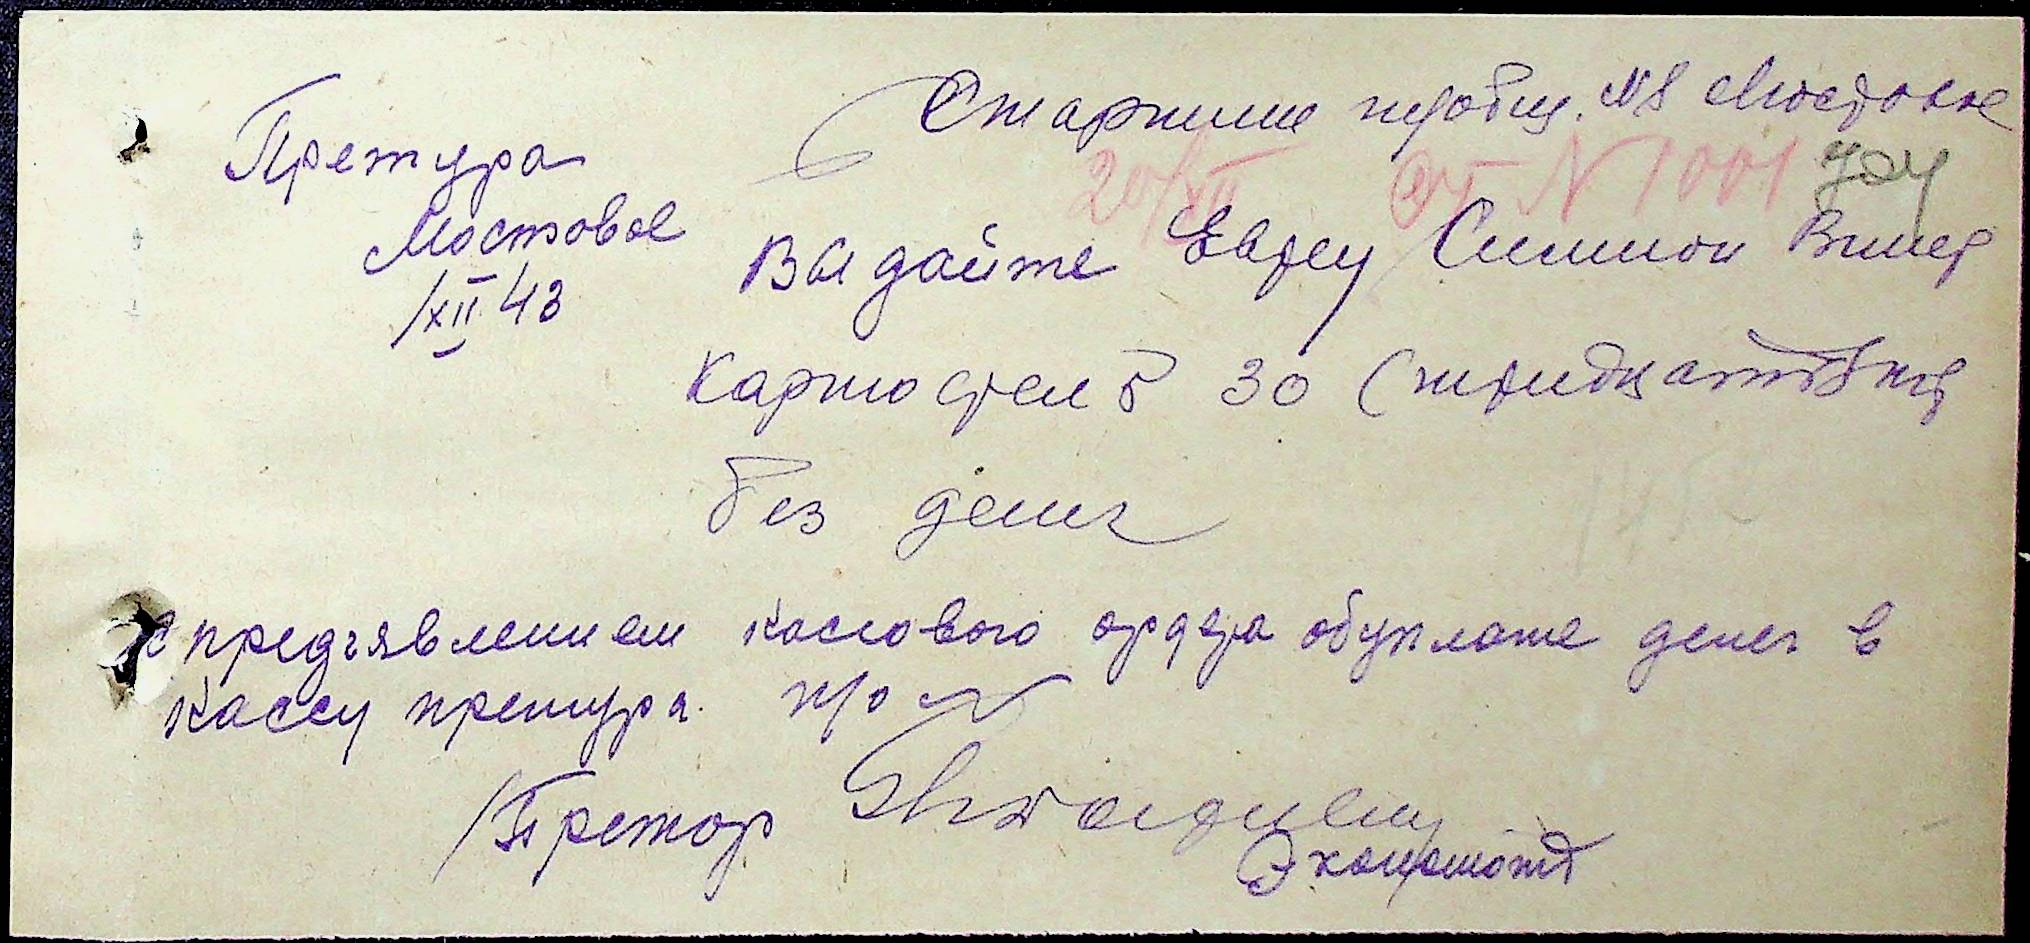 Претура
Мостовое
/XII 43
Старшине № 8 Мостовое
20/XII От N 1001
Выдайте Еврею Симион
Картофель 30 (тридцать кгр
без денег
с предъявлением кассового ордера об уплате денег в
кассу претура.
/Претор